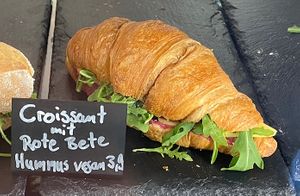 Croissant
mit
Rote Bete
Hummus vegan